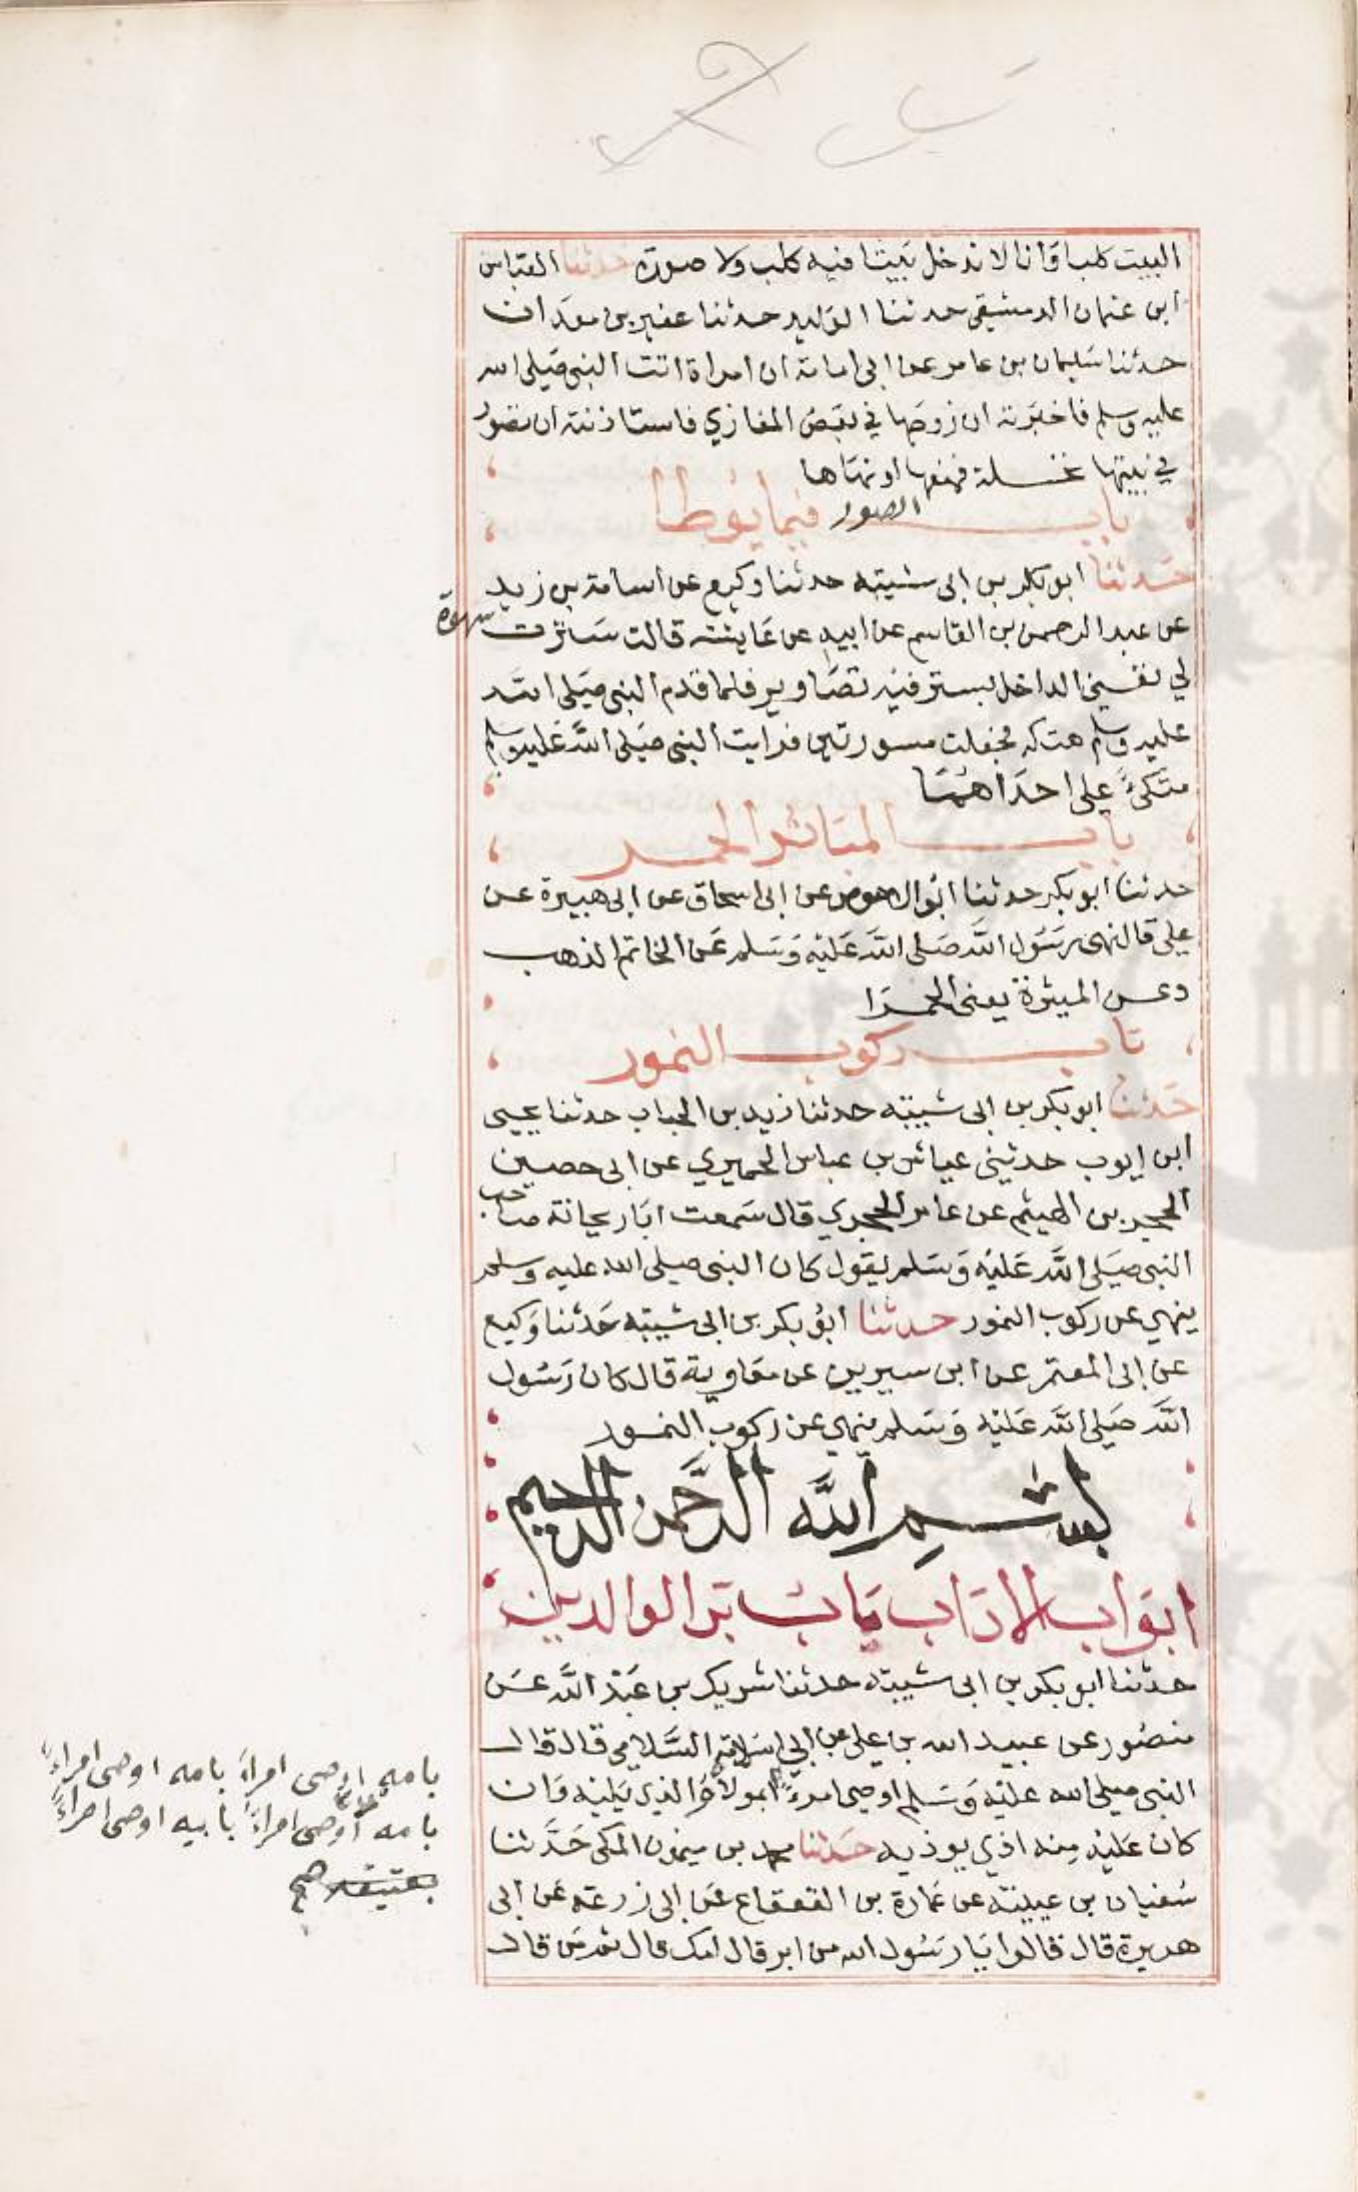 البيت كلبا وانا لا ندخل بيتا فيه كلب ولا صورة حدثنا العباس
ابن عثمان الدمشقي حدثنا الوليد حدثنا عفير بن معدان
حدثنا سليمان بن عامر عن ابي امامة ان امراة اتت النبي صلى الله
عليه وسلم فاخبرته ان زوجها في بعض المغازي فاستاذنته ان تصور
في بيتها نخلة فمنعها او نهاها
باب الصور فيما يوطا
حدثنا ابو بكر بن ابي شيبة حدثنا وكيع عن اسامة بن زيد
عن عبد الرحمن بن القاسم عن ابيه عن عايشة قالت سترت سهوة
لي تفسيني الداخل بستر فيه تصاوير فلما قدم النبي صلى الله
عليه وسلم هتكه فجعلت مسورتين فرايت النبي صلى الله عليه وسلم
متكئ على احداهما
باب المياثر الحمر
حدثنا ابو بكر حدثنا ابو الاحوص عن ابي اسحاق عن ابي هبيرة عن
علي قال نهى رسول الله صلى الله عليه وسلم عن الخاتم الذهب
وعن الميثرة يعني الحمرا
باب ركوب النمور
حدثنا ابو بكر بن ابي شيبة حدثنا زيد بن الحباب حدثنا يحيى
ابن ايوب حدثيني عياش بن عباس الحميري عن ابي حصين
الحجر بن الهيثم عن عامر الحجري قال سمعت ابا ريحانة صاحب
النبي صلى الله عليه وسلم يقول كان النبي صلى الله عليه وسلم
ينهى عن ركوب النمور حدثنا ابو بكر بن ابي شيبة حدثنا وكيع
عن ابي المعتمر عن ابن سيرين عن معاوية قال كان رسول
الله صلى الله عليه وسلم ينهى عن ركوب النمور
بسم الله الرحمن الرحيم
ابواب الاداب باب بر الوالدين
حدثنا ابو بكر بن ابي شيبة حدثنا شريك بن عبد الله عن
منصور عن عبيد الله بن علي عن ابي سلامة السلامي قال قال
النبي صلى الله عليه وسلم اوصي امرءً بمولاه الذي يليه وان
كان عليه منه اذي يوذيه حدثنا محمد بن ميمون المكي حدثنا
سفيان بن عيينة عن عمارة بن القعقاع عن ابي زرعة عن ابي
هريرة قال قالوا يا رسول الله من ابر قال امك قال ثم من قال
بامه اوصى امراءً بامه اوصى امراءً
بامه اوصى امراءً بابيه اوصى امراءً
صح